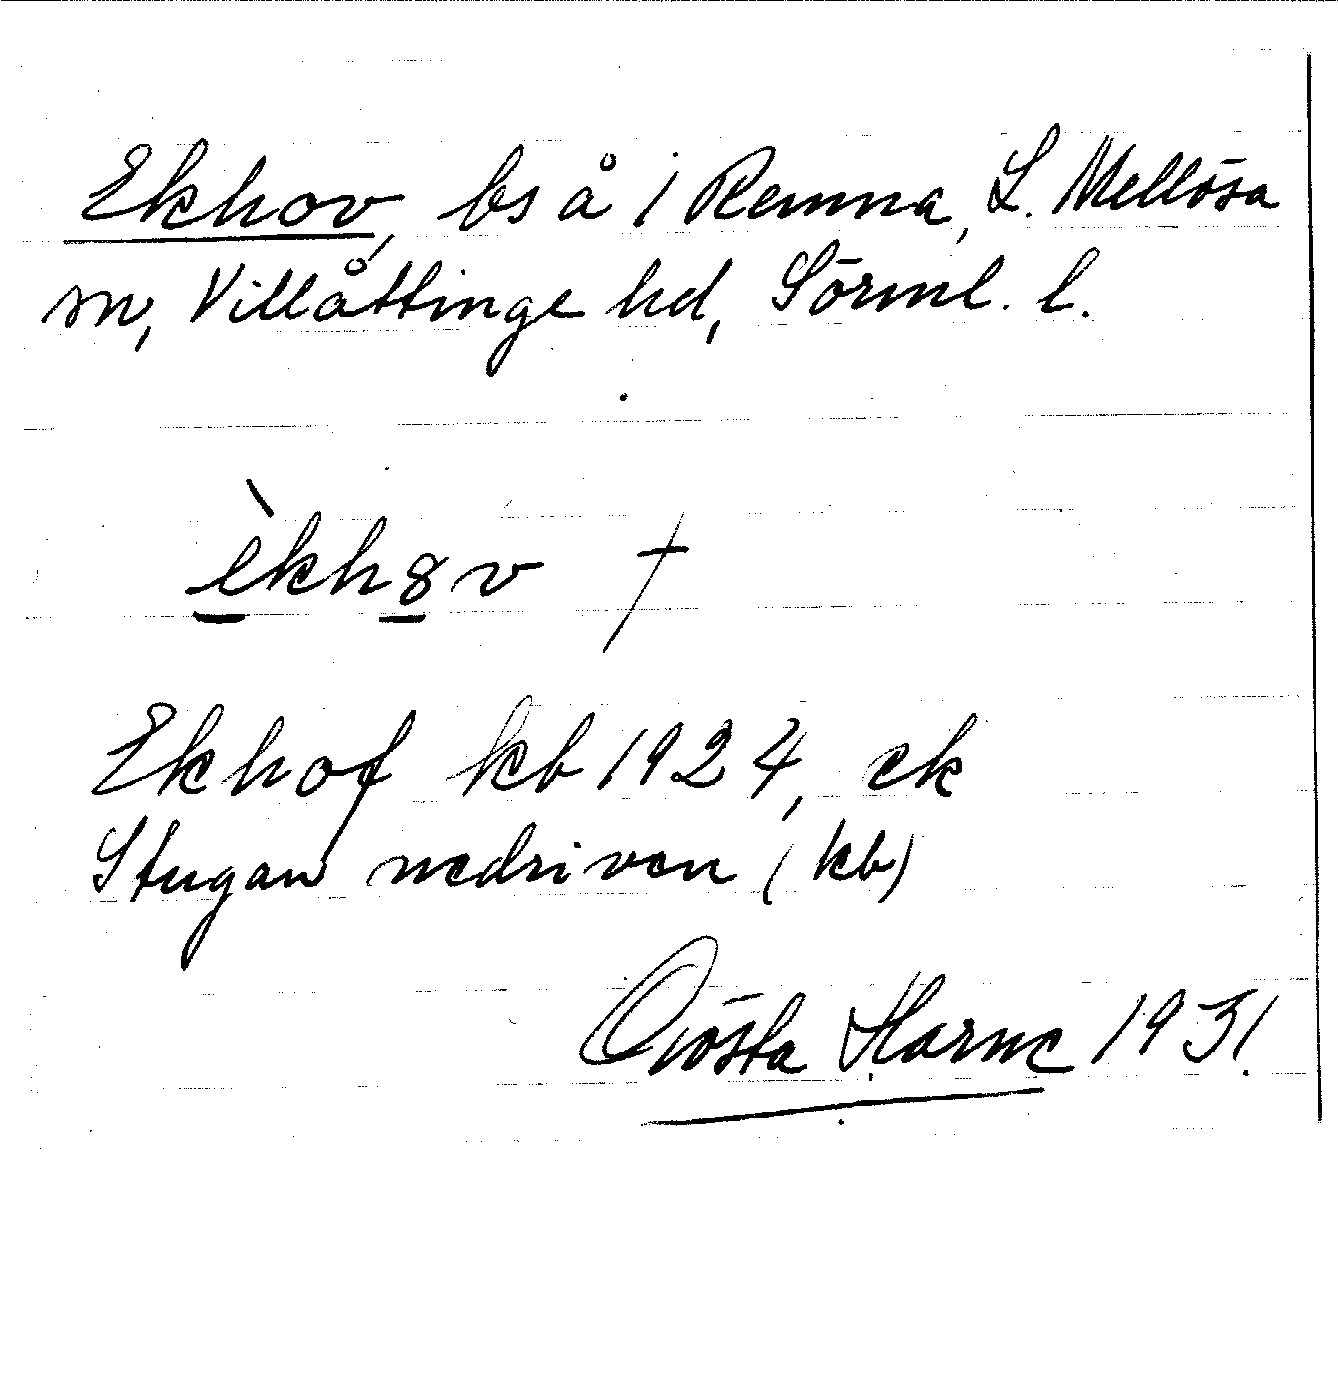 Ekhov, bs å i Remna, L. Mellösa
sn, Villåttinge hd, Sörml. l.
èkh8v †
Ekhof kb 1924, ek
Stugan nedriven (kb)
Gösta Harne 1931.